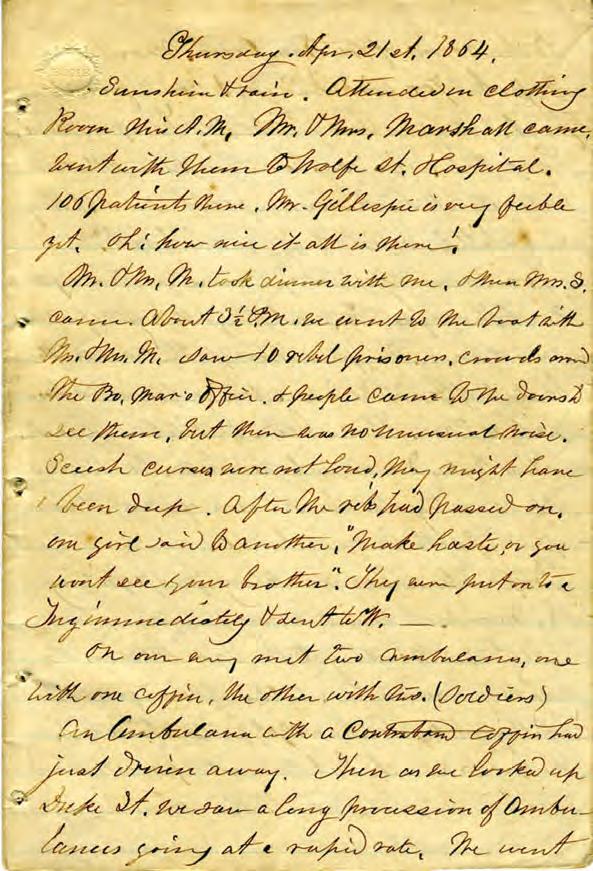 Thursday. Apr. 21st. 1864.
Sunshine & rain. Attended in clothing
Room this A.M. Mr. & Mrs. Marshall came,
went with them to Wolfe St. Hospital.
106 patients there. Mr. Gillespie is very feeble
yet. Oh! how nice it all is there!
Mr. & Mrs. M. took dinner with me, & then Mrs. S.
came. About 3½ P.M. we went to the boat with
Mr. & Mrs. M. saw 10 rebel prisoners, crowds around
the Pro. Mar's Office. & people came to the doors to
see them, but there was no unusual noise.
Secesh curses were not loud, they might have
been deep. After the reb had passed on,
one girl said to another, "Make haste, or you
wont see your brother". They were put on to a
Tug immediately & sent to W. —
On our way met two ambulances, one
with one coffin, the other with two. (Soldiers)
An Ambulance with a Contraband coffin had
just driven away. Then as we looked up
Duke St. we saw a long procession of Ambu-
lances going at a rapid rate. We went